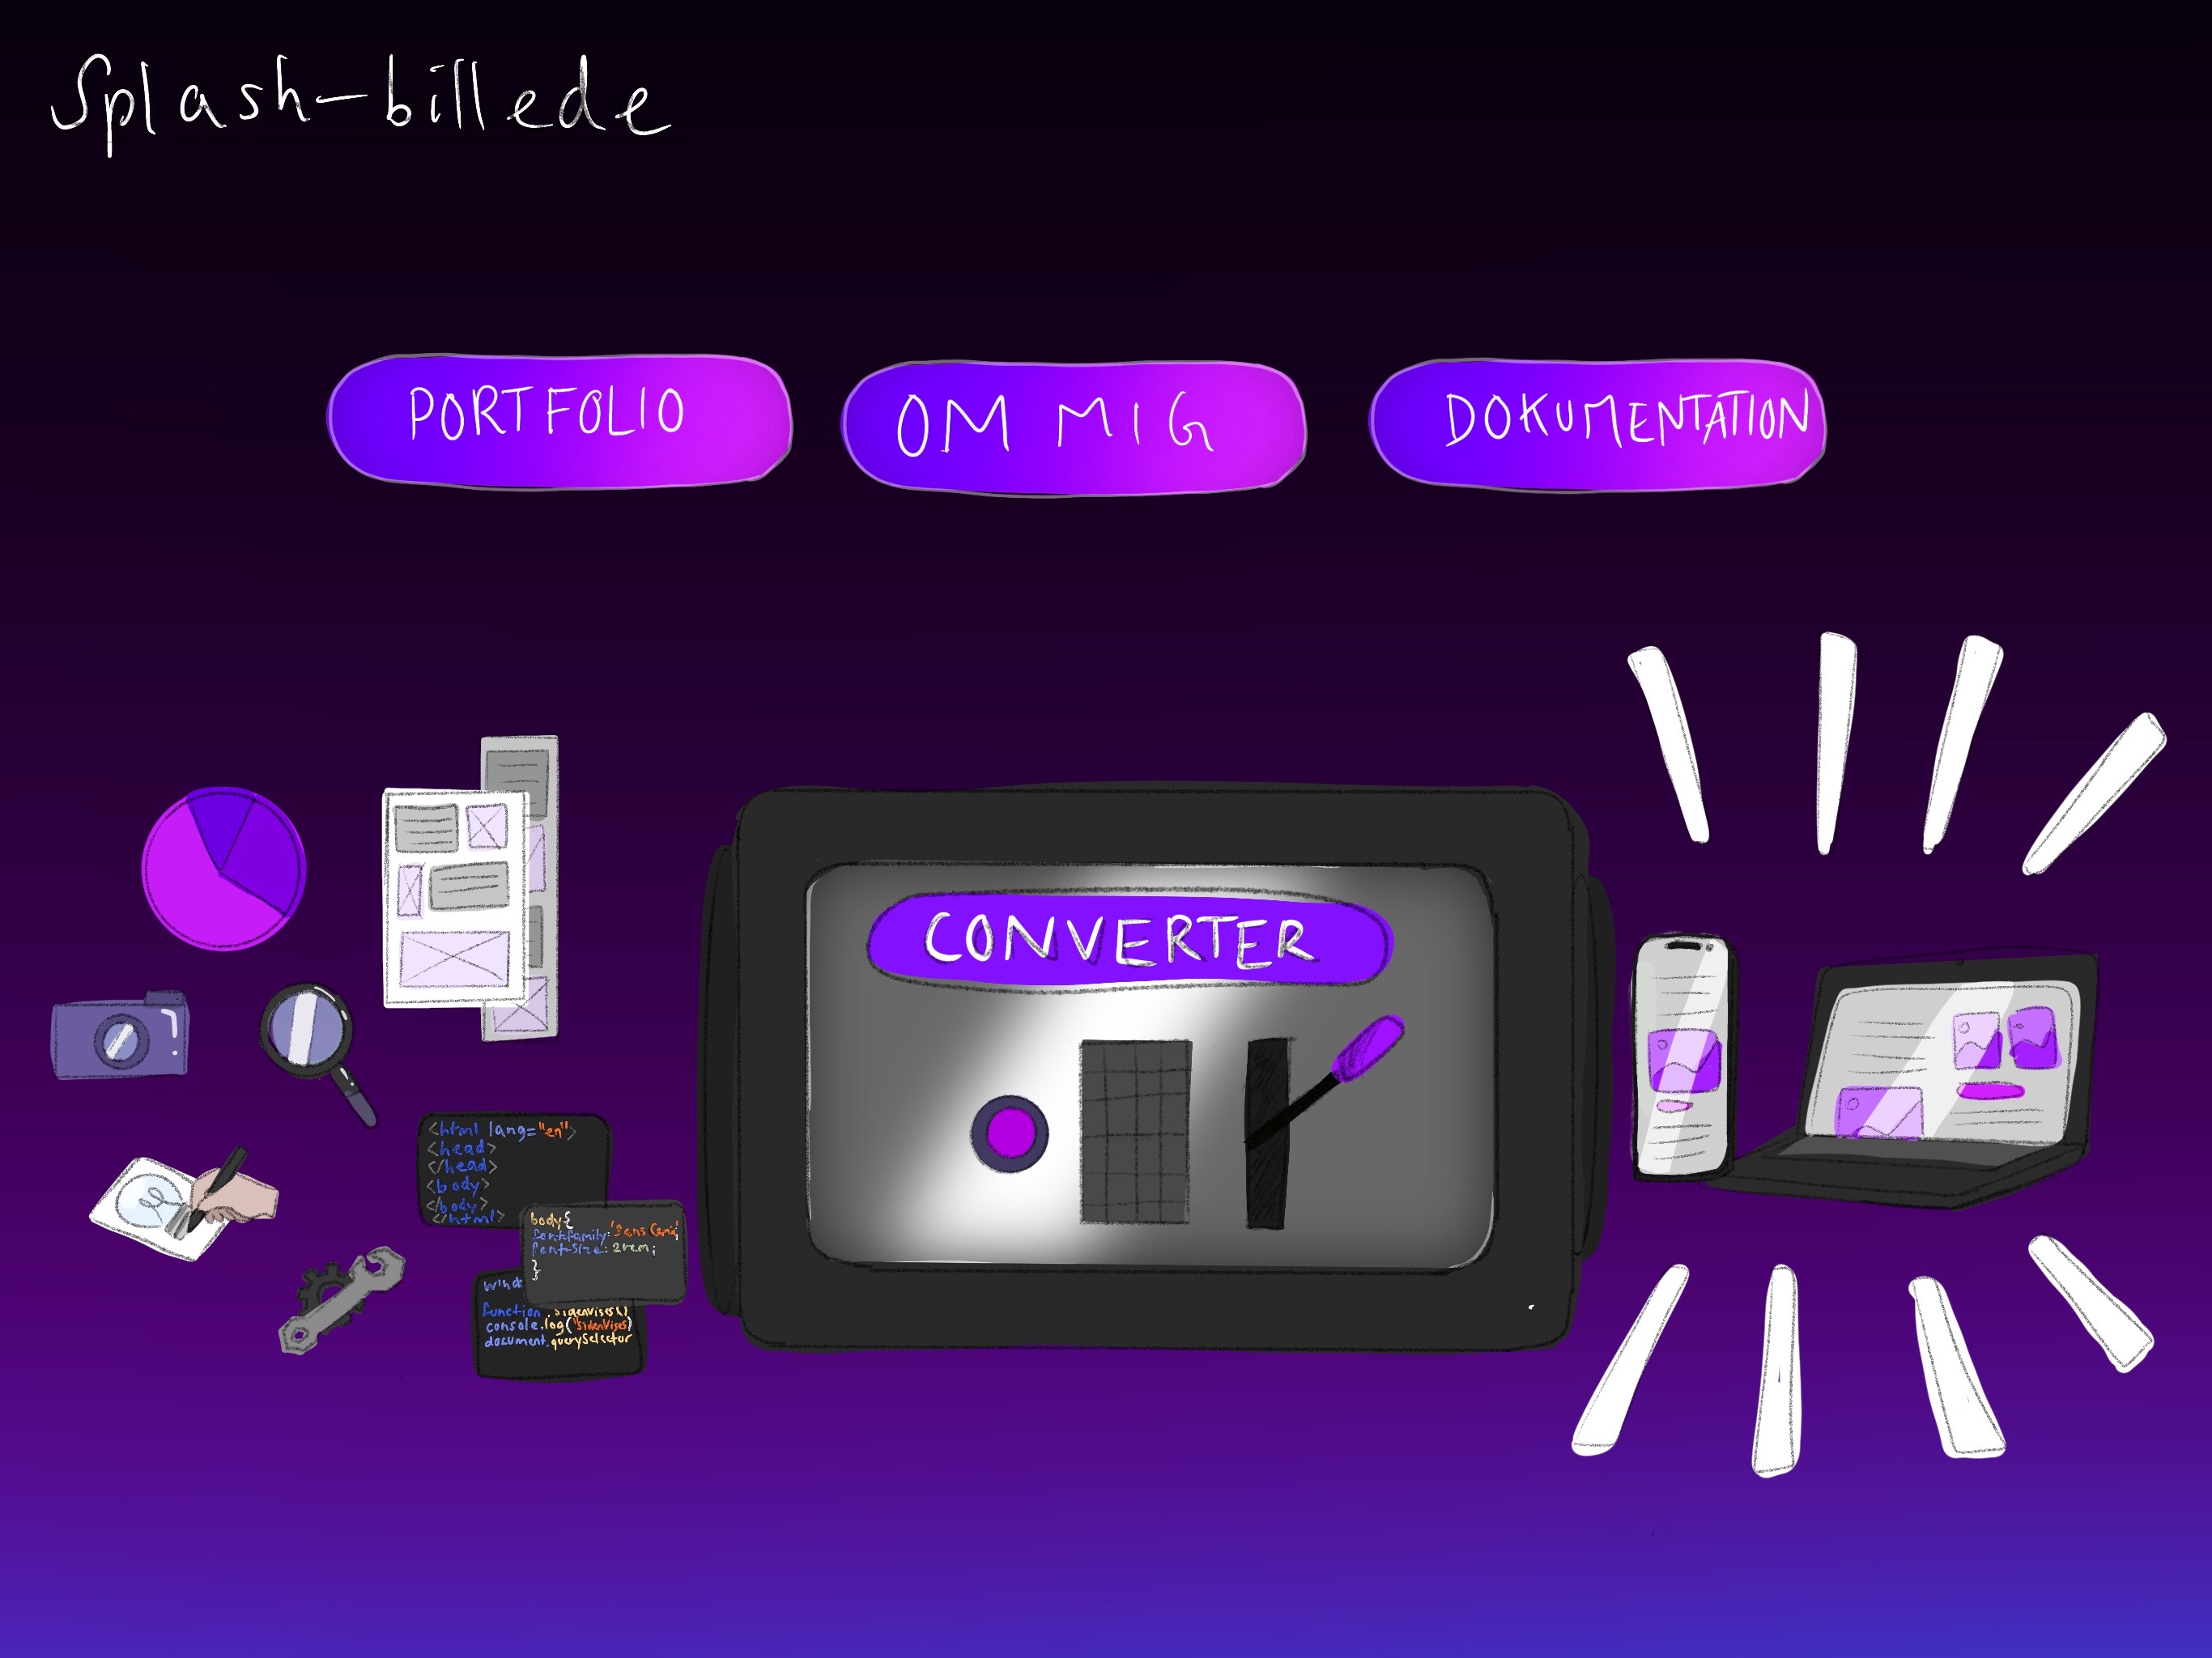 Splash-billede
PORTFOLIO
OM MIG
DOKUMENTATION
CONVERTER
<html lang="en">
<head>
</head>
<body>
</body>
</html>
body{
font-family: 'Sans
font-size: 2rem;
}
function sidenVises()
console.log("sidenVises)
document.querySelector